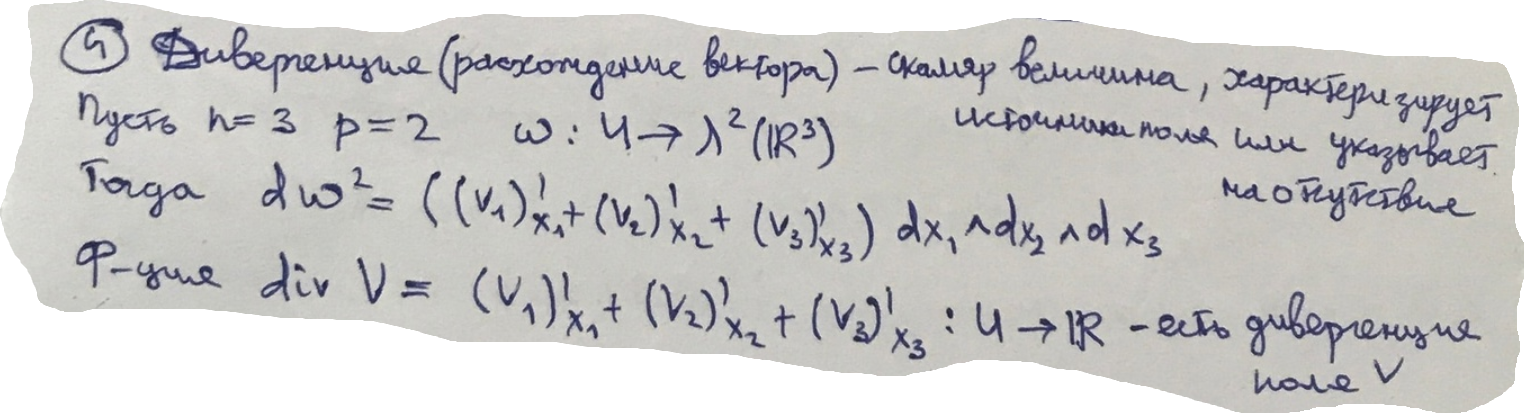 ④ Дивергенция (расхождение вектора) – скаляр величина, характеризирует
источники поля или указывает
на отсутствие
Пусть n = 3 p = 2 ω : U → λ²(ℝ³)
Тогда dω² = ((V₁)'ₓ₁ + (V₂)'ₓ₂ + (V₃)'ₓ₃) dx₁ ∧ dx₂ ∧ dx₃
Ф-ция div V = (V₁)'ₓ₁ + (V₂)'ₓ₂ + (V₃)'ₓ₃ : U → ℝ – есть дивергенция
поля V